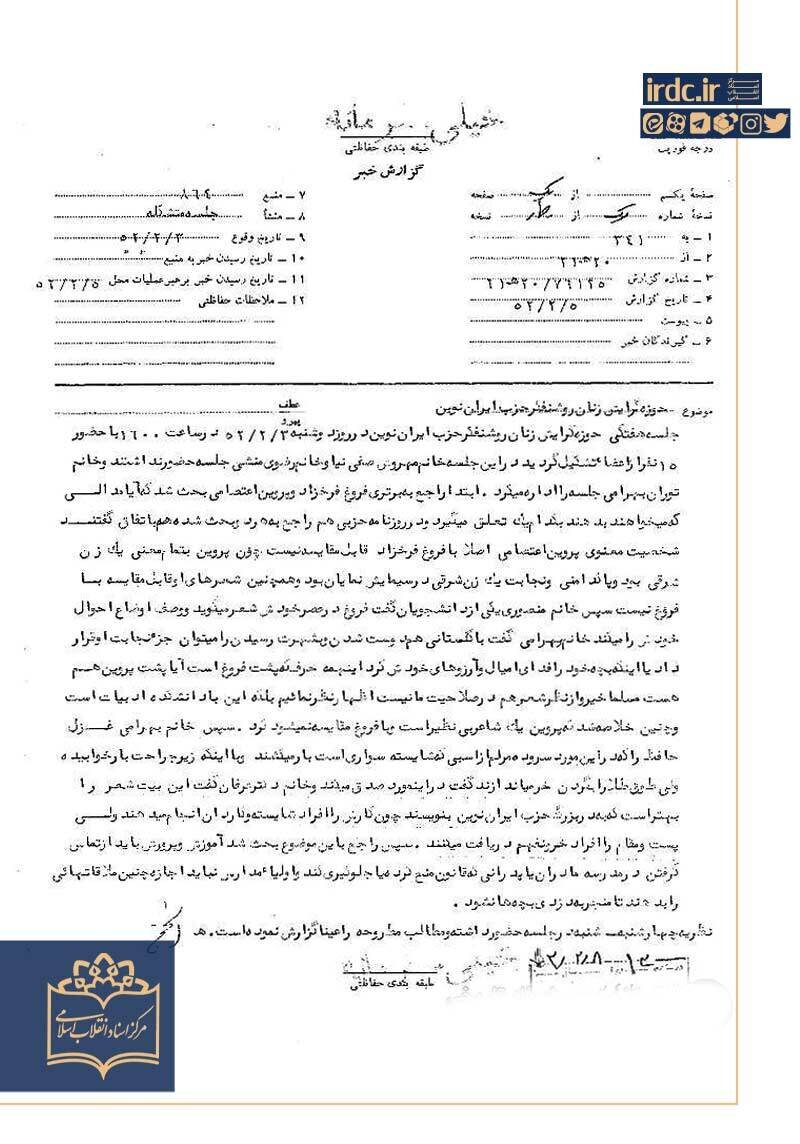 irdc.ir
مرکز اسناد انقلاب اسلامی
خیلی محرمانه
طبقه بندی حفاظتی
درجه فوریت
گزارش خبر
صفحهٔ یکم از یک صفحه
نسخهٔ شماره یک از چهار نسخه
۱ ــ به ۳۴۱
۲ ــ از ۲۰ه۲۱
۳ ــ شماره گزارش ۲۱ه۲۰/۷۹۱۲۵
۴ ــ تاریخ گزارش ۵۲/۲/۵
۵ ــ پیوست
۶ ــ گیرندگان خبر
۷ ــ منبع ۸۶۴
۸ ــ منشأ جلسه متشکله
۹ ــ تاریخ وقوع ۵۲/۲/۳
۱۰ ــ تاریخ رسیدن خبر به منبع
۱۱ ــ تاریخ رسیدن خبر برهبر عملیات محل ۵۲/۲/۵
۱۲ ــ ملاحظات حفاظتی
موضوع ـ حوزه گرایش زنان روشنفکر حزب ایران نوین
عطف
پیرو
جلسه هفتگی حوزه گرایش زنان روشنفکر حزب ایران نوین در روز دوشنبه ۵۲/۲/۳ در ساعت ۱۶۰۰ با حضور
۱۵ نفر از اعضاء تشکیل گردید در این جلسه خانم مهروش صفی نیا و خانم رضوی منشی جلسه حضور داشتند و خانم
توران بهرامی جلسه را اداره میکرد . ابتدا راجع به برتری فروغ فرخزاد و پروین اعتصامی بحث شد که آیا مدالی
که میخواهند بدهند بکدام یک تعلق میگیرد و در روزنامه حزبی هم راجع به هر دو بحث شده همه باتفاق گفتند
شخصیت معنوی پروین اعتصامی اصلا با فروغ فرخزاد قابل مقایسه نیست چون پروین بتمام معنی یک زن
شرقی بود و پاکدامنی و نجابت یک زن شرقی در سیمایش نمایان بود و همچنین شعرهای او قابل مقایسه با
فروغ نیست سپس خانم منصوری یکی از دانشجویان گفت فروغ در عصر خودش شعر میگوید و وصف اوضاع احوال
خودش را میکند خانم بهرامی گفت با گلستانی همدوست شدن و بشهرت رسیدن را میتوان جزء نجابت او قرار
داد یا اینکه بچه خود را فدای امیال و آرزوهای خودش کرد اینهمه حرف که پشت فروغ است آیا پشت پروین هم
هست مسلما خیر و از نظر شعر هم در صلاحیت ما نیست اظهار نظر نمائیم بلکه این با داننده ادبیات است
و چنین خلاصه شد که پروین یک شاعر بی نظیر است و با فروغ مقایسه نمیشود کرد . سپس خانم بهرامی غزل
حافظ را که در این مورد سروده مردم از اسبی که شایسته سواری است بار میکشند و با اینکه زیر جراحت بار خوابیده
ولی طوق طلا را بگردن خر میاندازند گفت در اینمورد صدق میکند و خانم دکتر عرفان گفت این بیت شعر را
بهتر است که به دبیر کل حزب ایران نوین بنویسند چون کارش را افراد شایسته و کاردان انجام میدهند ولی
پست و مقام را افراد خر و نفهم دریافت میکنند . سپس راجع باین موضوع بحث شد آموزش و پرورش باید از تماس
گرفتن در مدرسه مادران یا پدرانی که قانون منع کرده جلوگیری کند و اولیاء مدارس نباید اجازه چنین ملاقاتهائی
را بدهند تا منجر به دزدی بچه‌ها نشود .
نظریه چهارشنبه ـ شنبه در جلسه حضور داشته و مطالب مطروحه را عینا گزارش نموده است. ه
طبقه بندی حفاظتی
مرکز اسناد انقلاب اسلامی